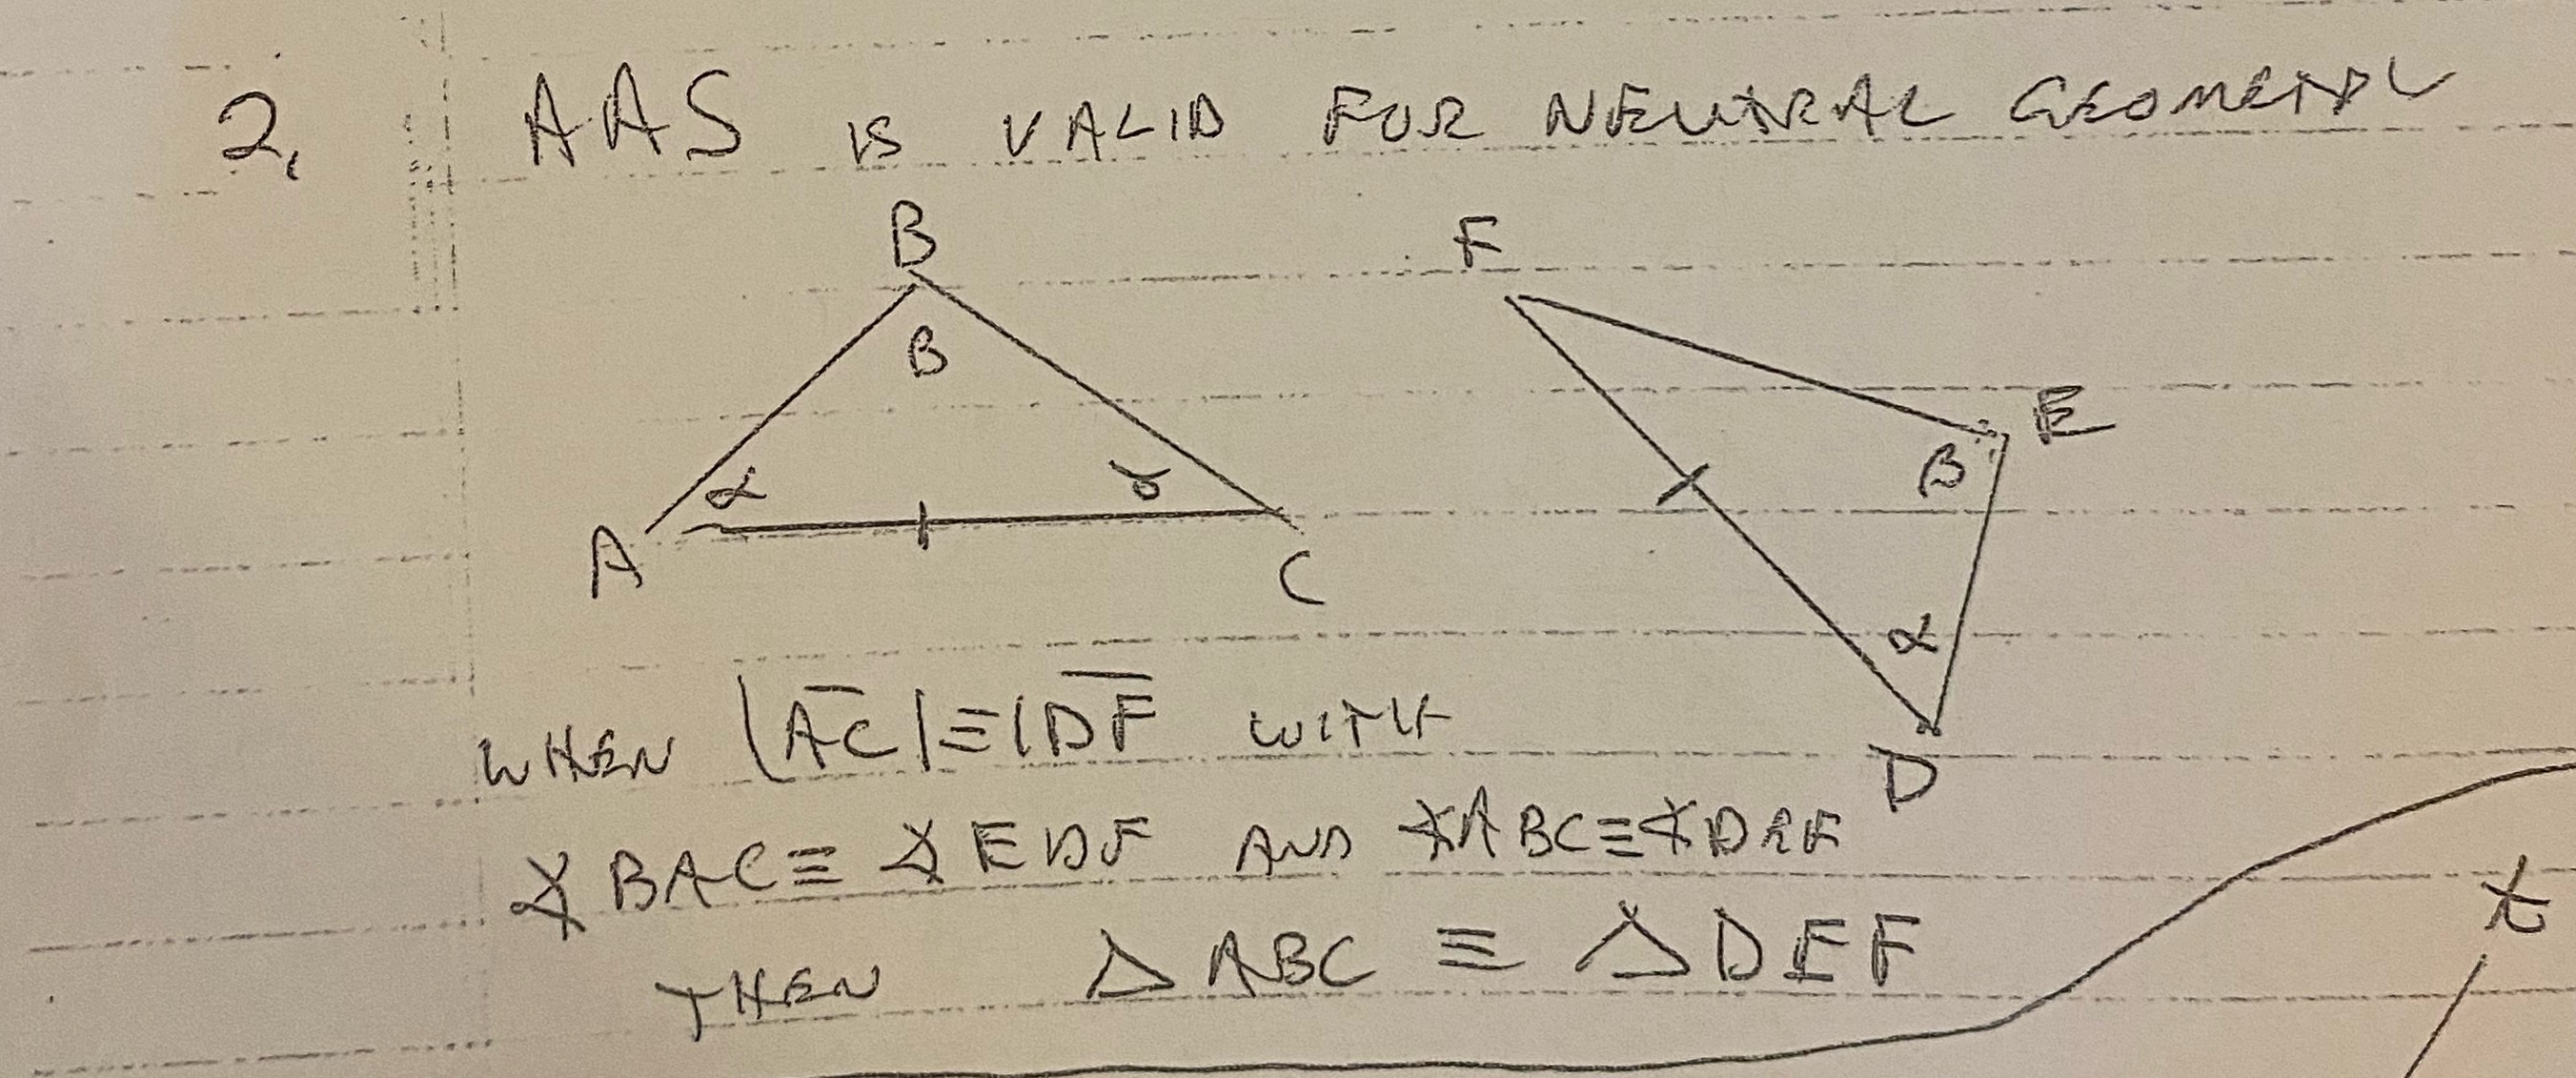 2. AAS IS VALID FOR NEUTRAL GEOMETRY
B
F
B
E
β
α
γ
A
C
α
D
WHEN |AC| ≡ |DF WITH
∡BAC ≡ ∡EDF AND ∡ABC ≡ ∡DEF
THEN △ABC ≡ △DEF
t